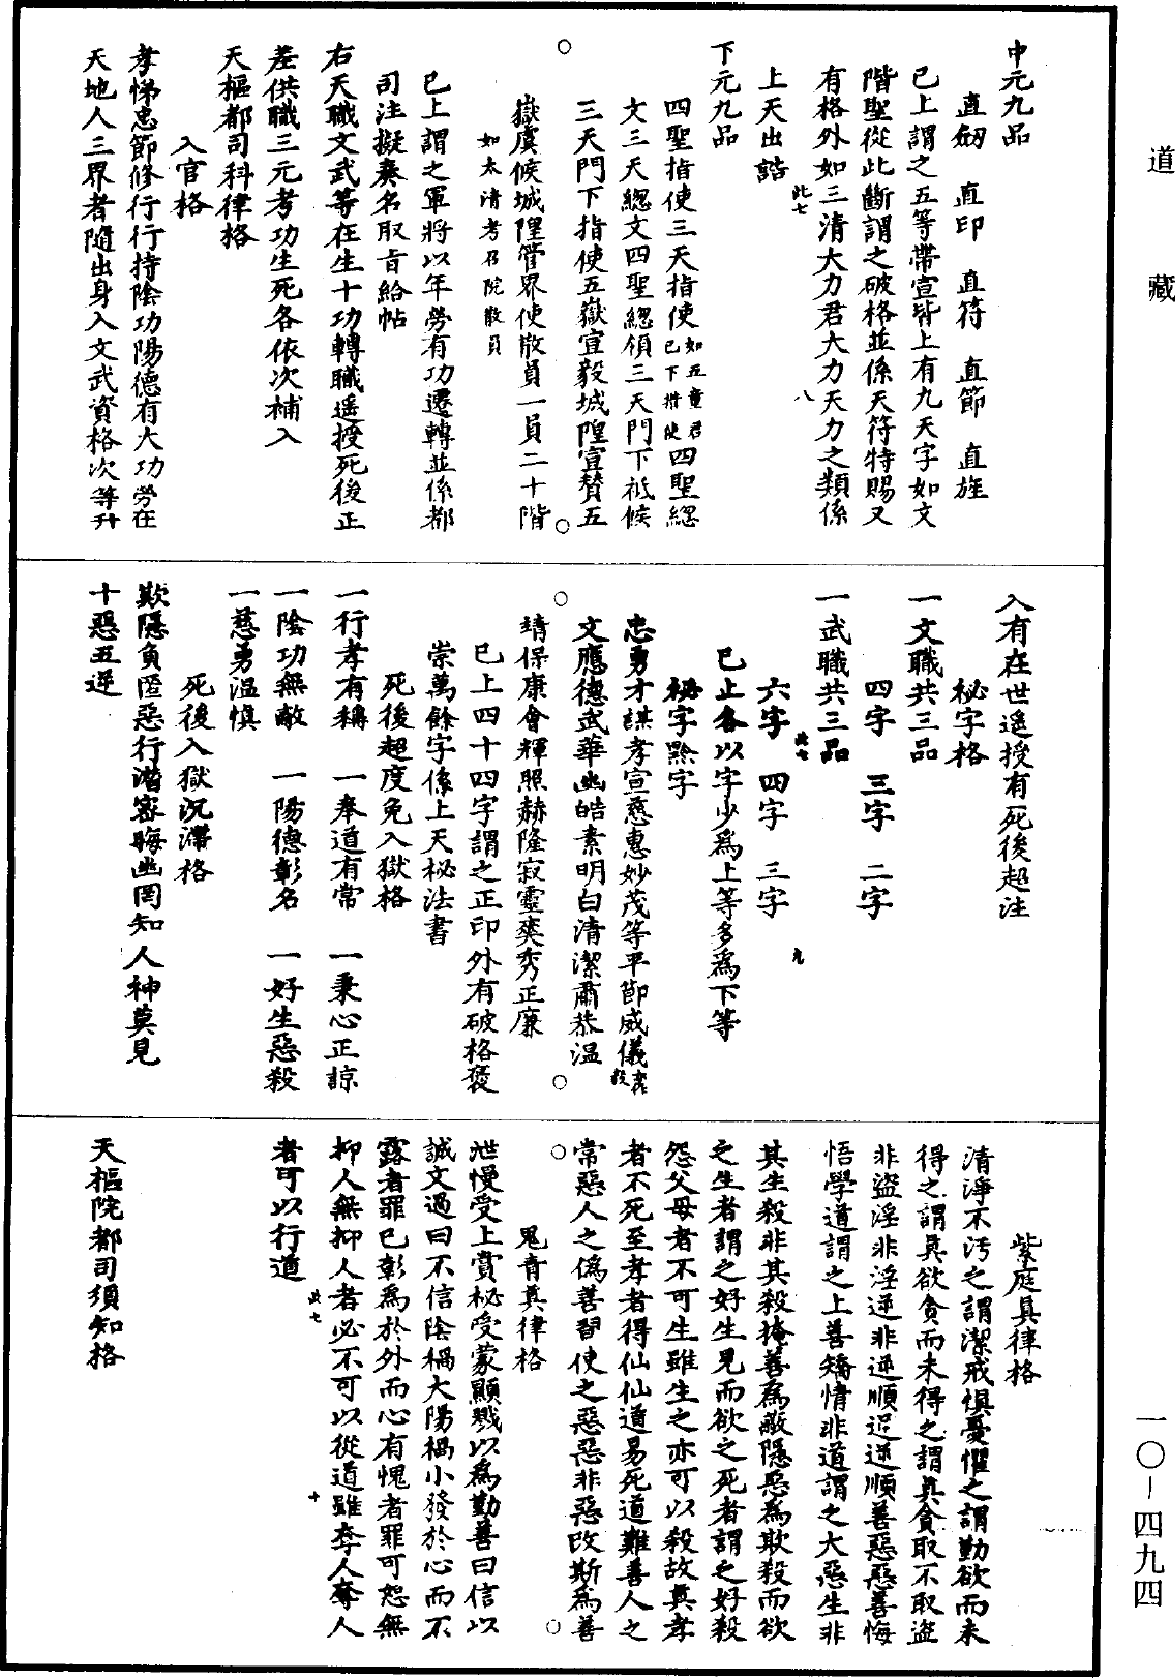 道藏
中元九品
直劒　直印　直符　直節　直旌
已上謂之五等帶宣皆上有九天字如文
階聖從此斷謂之破格並係天符特賜又
有格外如三清大力君大力天力之類係
上天出誥
此七　八
下元九品
四聖指使三天指使如五童君已下指使四聖緫
文三天緫文四聖緫領三天門下祗候
三天門下指使五嶽宣毅城隍宣贊五
嶽虞候城隍管界使散員一員二十階
如太清考召院散員
已上謂之軍將以年勞有功遷轉並係都
司注擬奏名取旨給帖
右天職文武等在生十功轉職遥授死後正
差供職三元考功生死各依次補入
天樞都司科律格
入官格
孝悌忠節修行行持陰功陽德有大功勞在
天地人三界者隨出身入文武資格次等升
入有在世遥授有死後超注
秘字格
一文職共三品
四字　三字　二字
一武職共三品
六字　四字　三字
此七　九
已上各以字少爲上等多爲下等
秘字黔字
忠勇才謀孝宣慈惠妙茂等平節威儀
文應德武華幽皓素明白清潔肅恭温
靖保康會輝照赫隆寂靈奕秀正廉
已上四十四字謂之正印外有破格褒
崇萬餘字係上天秘法書
死後超度免入獄格
一行孝有稱　一奉道有常　一秉心正諒
一陰功無敵　一陽德彰名　一好生惡殺
一慈勇温慎
死後入獄沉滯格
欺隱負匿惡行潜密晦幽罔知人神莫見
十惡五逆
紫庭真律格
清淨不污之謂潔戒懼憂懼之謂勤欲而未
得之謂真欲貪而未得之謂真貪取不取盜
非盜淫非淫逆非逆順迢逆順善惡惡善悔
悟學道謂之上善矯情非道謂之大惡生非
其生殺非其殺掩善爲敵隱惡爲欺殺而欲
之生者謂之好生見而欲之死者謂之好殺
怨父母者不可生雖生之亦可以殺故真孝
者不死至孝者得仙仙道易死道難善人之
常惡人之偽善習使之惡惡非惡改斯爲善
鬼育真律格
泄慢受上賞秘受蒙顯戮以爲勤善曰信以
誠文過曰不信陰禍大陽禍小發於心而不
露者罪已彰爲於外而心有愧者罪可恕無
抑人無抑人者必不可以從道雖奪人奪人
者可以行道
此七　十
天樞院都司須知格
一〇－四九四